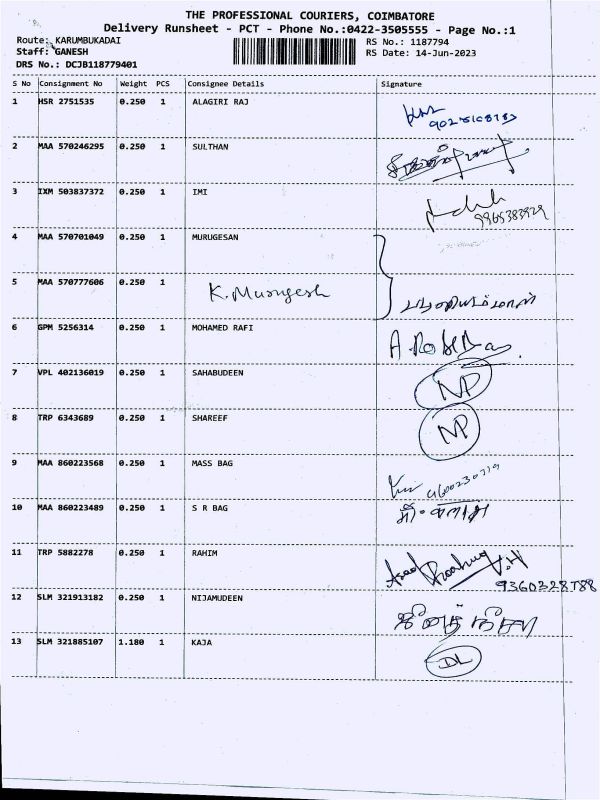 THE PROFESSIONAL COURIERS, COIMBATORE
Delivery Runsheet - PCT - Phone No.:0422-3505555 - Page No.:1
Route: KARUMBUKADAI RS No.: 1187794
Staff: GANESH RS Date: 14-Jun-2023
DRS No.: DCJB118779401
S No Consignment No Weight PCS Consignee Details Signature
1 HSR 2751535 0.250 1 ALAGIRI RAJ
2 MAA 570246295 0.250 1 SULTHAN
3 IXM 503837372 0.250 1 IMI
4 MAA 570701049 0.250 1 MURUGESAN
5 MAA 570777606 0.250 1 K. Murugesh
6 GPM 5256314 0.250 1 MOHAMED RAFI
7 VPL 402136019 0.250 1 SAHABUDEEN NP
8 TRP 6343689 0.250 1 SHAREEF NP
9 MAA 860223568 0.250 1 MASS BAG
10 MAA 860223489 0.250 1 S R BAG
11 TRP 5882278 0.250 1 RAHIM
9360328788
12 SLM 321913182 0.250 1 NIJAMUDEEN
13 SLM 321885107 1.180 1 KAJA DL